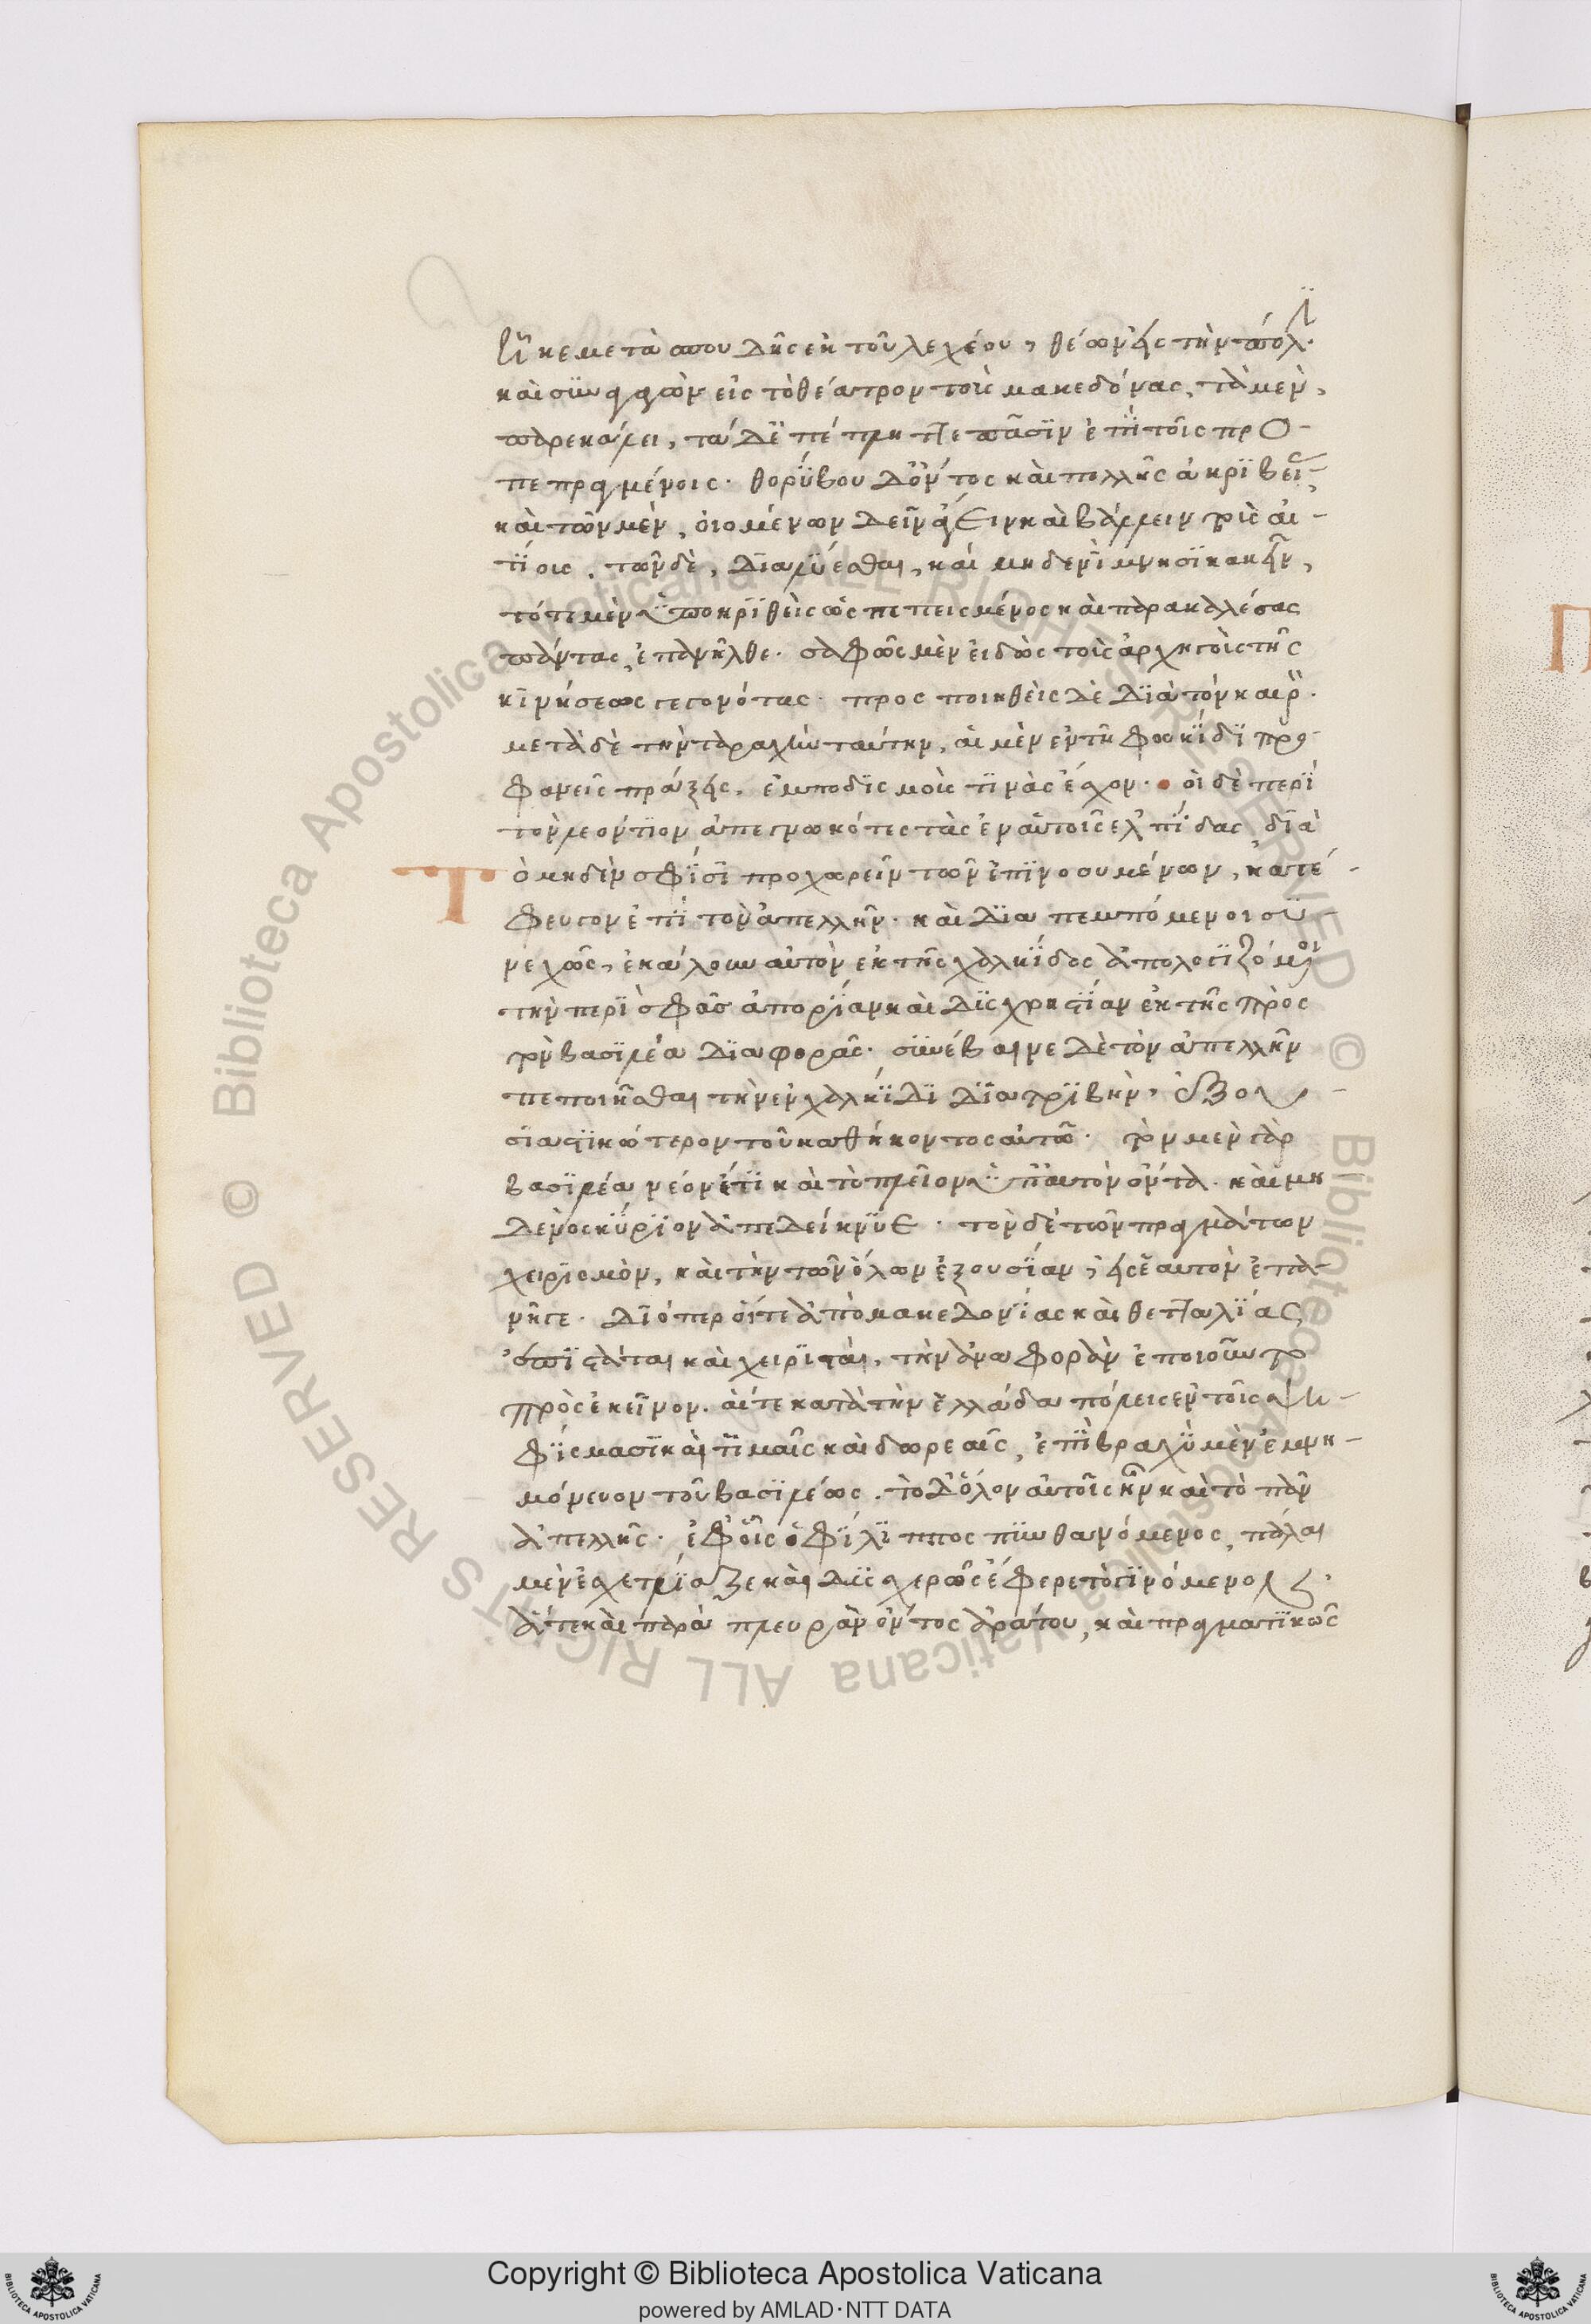 ἧκε μετὰ σπουδῆς ἐκ τοῦ λεχέου, θέων εἰς τὴν πόλϊ·
καὶ σϋναγαγὼν εἰς τὸ θέατρον τοὺς μακεδόνας, τὰ μὲν,
παρεκάλει, τὰ δ' ἐπέπληττε πᾶσϊν ἐπῒ τοῖς προ-
πεπραγμένοις· θορΰβου δ' ὄντος καὶ πολλῆς ἀκρϊβεί-
καὶ τῶν μὲν, οἰομένων δεῖν ἄγειν καὶ βάλλειν τοὺς αἰ-
τίοις. τῶν δὲ, δϊαλΰεσθαι, καὶ μηδενὶ μνησϊκακεῖν,
τότε μὲν ὑποκρϊθεὶς ὡς πεπεισμένος καὶ παρακαλέσας
πάντας, ἐπανῆλθε· σαφῶς μὲν εἰδὼς τοὺς ἀρχηγοὺς τῆς
κϊνήσεως γεγονότας· προσποιηθεὶς δὲ δϊὰ τὸν καιρ.
μετὰ δὲ τὴν ταραχὴν ταύτην, αἱ μὲν ἐν τῆ φωκΐδϊ προ-
φανεῖς πράξεις. ἐμποδϊσμοὺς τϊνὰς ἔσχον· οἱ δὲ περῒ
τὸν λεόντϊον ἀπεγνωκότες τὰς ἐν αὑτοῖς ἐλπΐδας δϊὰ
Τὸ μηδὲν σφΐσϊ προχωρεῖν τῶν ἐπϊνοουμένων, κατέ-
φευγον ἐπῒ τὸν ἀπελλῆν· καὶ δϊαπεμπόμενοι σϋ-
νεχῶς, ἐκάλουν αὐτὸν ἐκ τῆς χαλκΐδος ἀπολογϊζόμοι
τὴν περῒ σφᾶσ ἀπορΐαν καὶ δϊσχρηστΐαν ἐκ τῆς πρὸς
τὸν βασϊλέα δϊαφορᾶς· σϋνέβαινε δὲ τὸν ἀπελλῆν
πεποιῆσθαι τὴν ἐν χαλκΐδϊ δϊατρϊβὴν, ἐξου-
σϊαστϊκώτερον τοῦ καθήκοντος αὐτῶ· τὸν μὲν γὰρ
βασϊλέα νέον ἔτϊ καὶ τὸ πλεῖον ὑπ' αὑτὸν ὄντα. καὶ μη
δενὸς κΰρϊον ἀπεδείκνϋε· τὸν δὲ τῶν πραγμάτων
χειρϊσμὸν, καὶ τὴν τῶν ὅλων ἐξουσΐαν, εἰς ἑαυτὸν ἐπα-
νῆγε· δϊόπερ οἵ τε ἀπὸ μακεδονΐας καὶ θετταλΐας
ἐπϊστάται καὶ χειρϊσταὶ, τὴν ἀναφορὰν ἐποιοῦντο
πρὸς ἐκεῖνον. αἵ τε κατὰ τὴν ἑλλάδα πόλεις ἐν τοῖς ψη-
φΐσμασϊ καὶ τϊμαῖς καὶ δωρεαῖς, ἐπῒ βραχῢ μὲν ἐμνη-
μόνευον τοῦ βασϊλέως. τὸ δ' ὅλον αὐτοῖς ἦν καὶ τὸ πᾶν
ἀπελλῆς· ἐφ' οἷς ὁ φΐλϊππος πϋνθανόμενος, πάλαι
μὲν ἐσχετλΐαζε καὶ δϋσχερῶς ἔφερε τὸ γϊνόμενον.
ἅτε καὶ παρὰ πλευρὰν ὄντος ἀράτου, καὶ πραγματϊκῶς
Copyright © Biblioteca Apostolica Vaticana
powered by AMLAD·NTT DATA